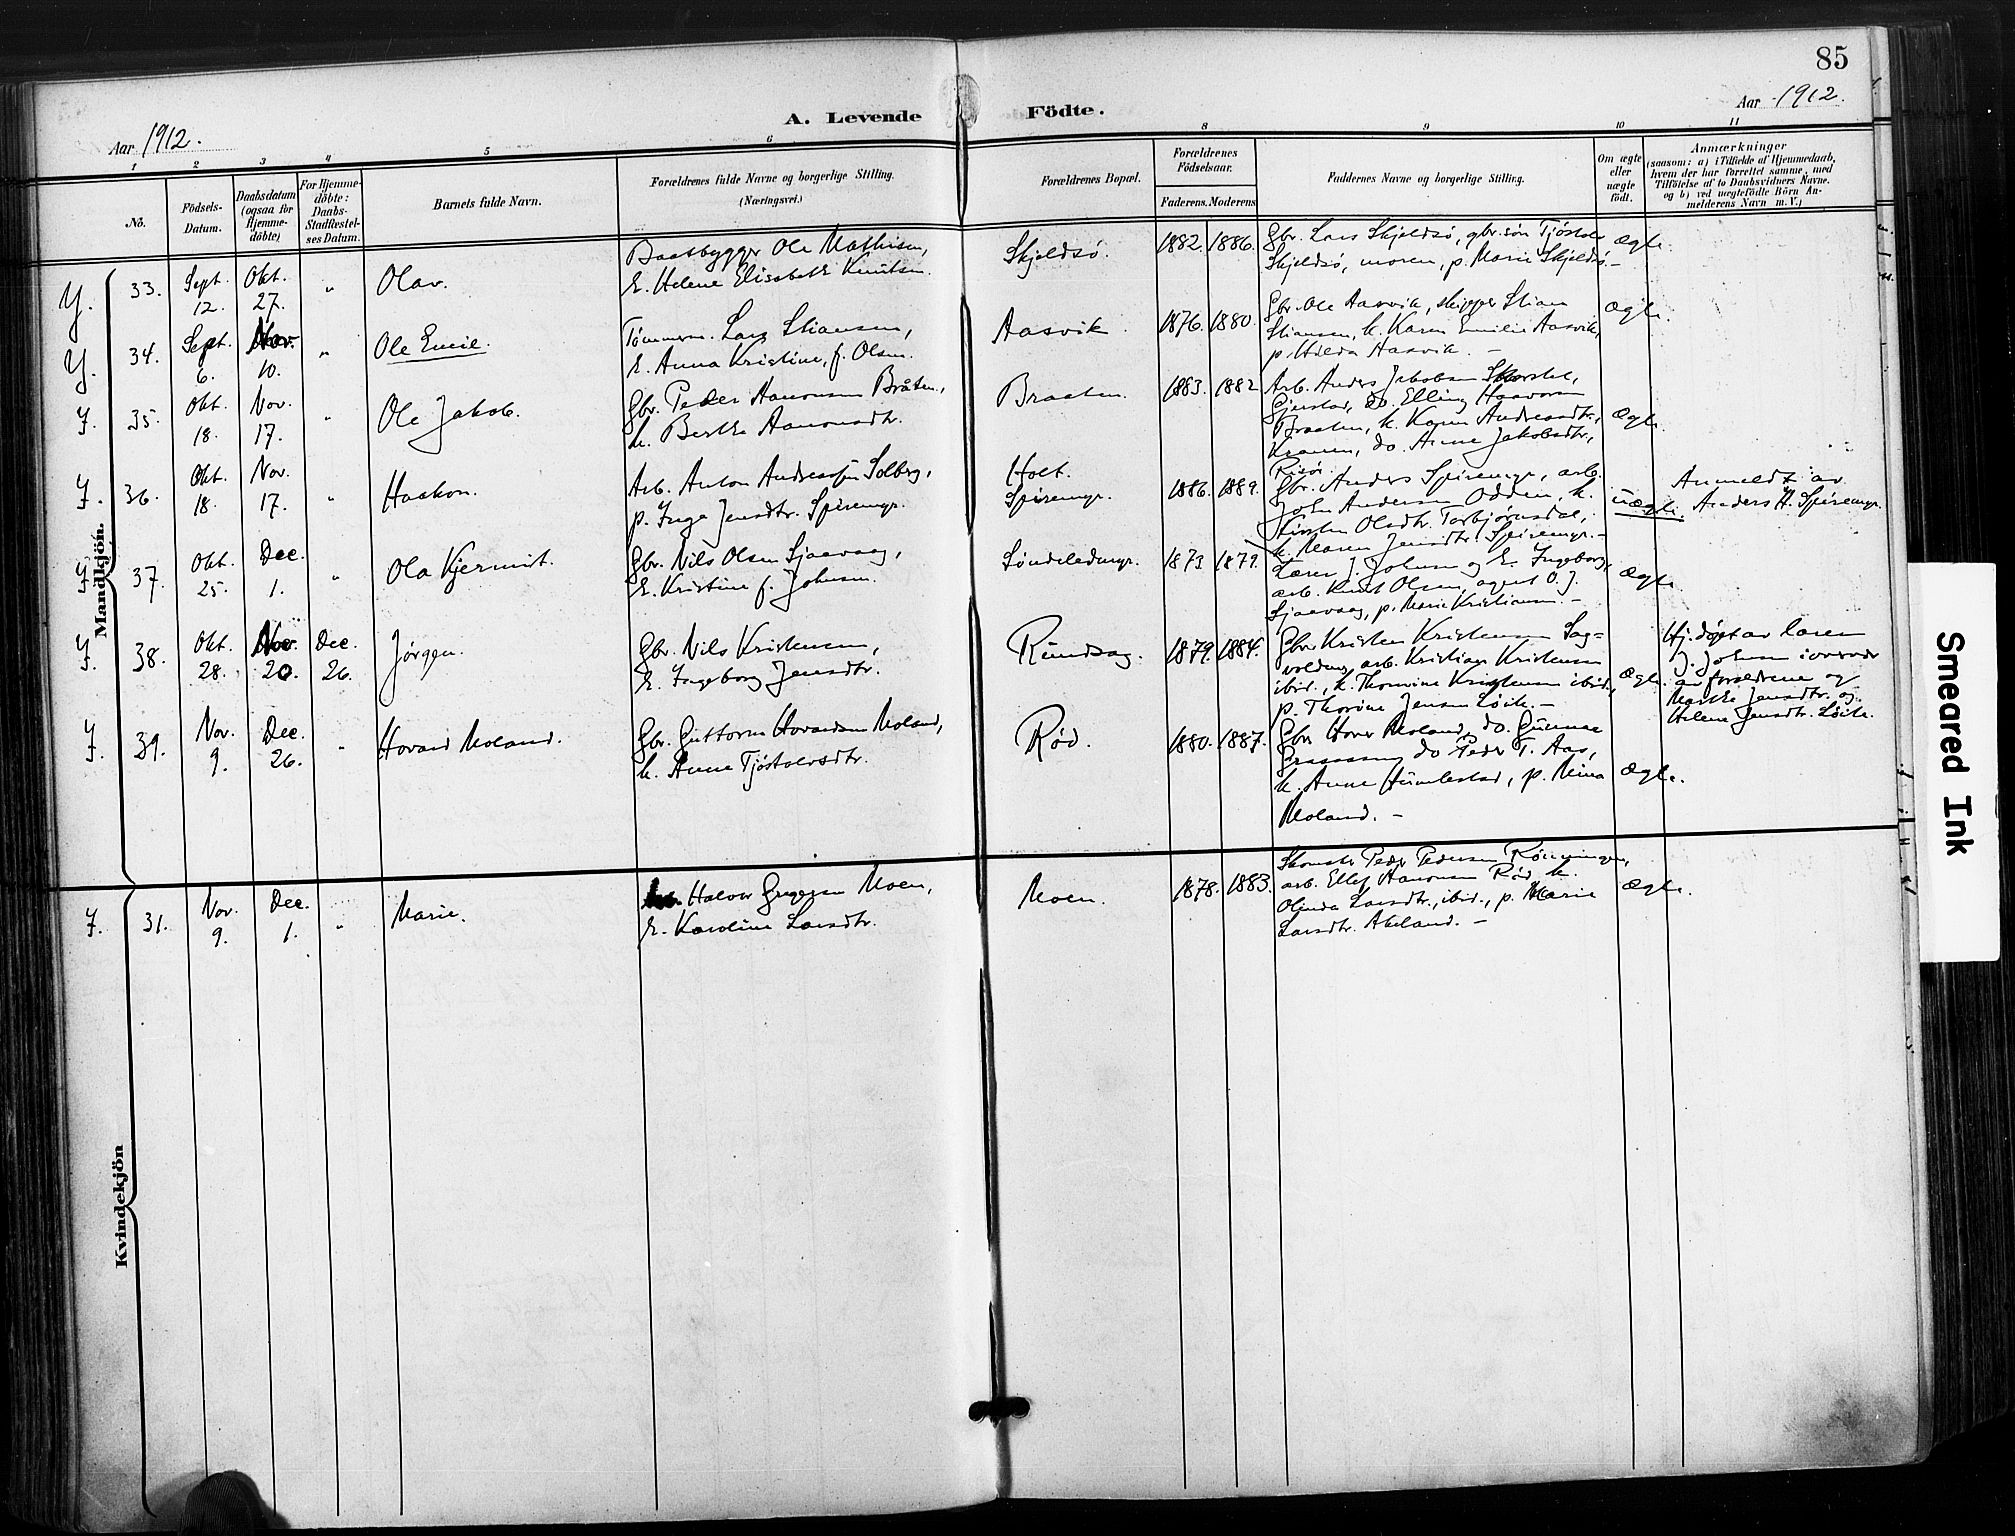 85
Aar 1912.
A. Levende Födte.
Aar 1912.
1 2 3 4 5 6 8 9 10 11
No.
Födsels-Datum.
Daabsdatum (ogsaa for Hjemme-döbte)
For Hjemme-döbte: Daabs-Stadfæstel-ses Datum.
Barnets fulde Navn.
Forældrenes fulde Navne og borgerlige Stilling. (Næringsvei.)
Forældrenes Bopæl.
Forældrenes Födselsaar.
Faderens. Moderens
Faddernes Navne og borgerlige Stilling.
Om ægte eller uægte födt.
Anmærkninger
(saasom: a) i Tilfælde af Hjemmedaab,
hvem der har forrettet samme, med
Tilföielse af to Daabsvidners Navne.
og b) ved uægtefödte Börn An-
melderens Navn m. V.)
Mandkjön.
Y. 33. Sept. 12. Okt. 27. " Olav.
Baatbygger Ole Mathisen,
E. Helene Elisabeth Knutsen.
Skjeldsø. 1882. 1886.
Gbr. Lars Skjeldsø, gbr. søn Tjøstolv
Skjeldsø, moren, p. Marie Skjeldsø. –
ægte.
Y. 34. Sept. 6. Nov. 10. " Ole Emil.
Tømmerm. Lars Stiansen,
E. Anna Kristine, f. Olsen.
Aasvik. 1876. 1880.
Gbr. Ole Aasvik, skipper Stian
Stiansen, k. Karen Emilie Aasvik,
p. Hilda Aasvik. –
ægte.
F. 35. Okt. 18. Nov. 17. " Ole Jakob.
Gbr. Peder Hansen Bråten,
k. Berthe Aanonsdtr.
Braaten. 1883. 1882
Arb. Anders Jakobsen
Gjerstad, do. Elling Haavorsen
Braaten, k. Karen Andreasdtr.,
do. Anne Jakobsdtr,
Risør.
ægte.
F. 36. Okt. 18. Nov. 17. " Haakon.
Arb. Anton Andreassen Solberg,
p. Inga Jensdtr. Spiremyr.
Holt.
Spiremyr. 1886. 1889.
Gbr. Anders Spiremyr, arb.
John Andersen Odden, k.
Kirsten Olsdtr. Torbjørnsdal,
k. Maren Jensdtr. Spiremyr. –
uægte.
Anmeldt av
Anders H. Spiremyr.
F. 37. Okt. 25. Dec. 1. " Ola Kjermit.
Gbr. Nils Olsen Sjaavaag,
E. Kristine f. Johnsen.
Søndeledmyr. 1873 1879.
Lærer J. Johnsen og E. Ingeborg,
arb. Knut Olsen, agent O. J.
Sjaavaag, p. Marie Kristiansen. –
ægte.
F. 38. Okt. 28. Nov. 20. Dec. 26. Jørgen.
Gbr. Nils Kristensen,
E. Ingeborg Jensdtr.
Rundsag. 1879. 1884.
Gbr. Kristen Kristensen Sag-
volden, arb. Kristian Kristensen
ibid., k. Thorvine Kristensen ibid.,
p. Thorine Jensen Løite. –
ægte.
Hj.døpt av lærer
J. Johnsen i nærvær
av forældrene og
Marthe Jensdtr. og
Helene Jensdtr. Løite.
F. 39. Nov. 9. Dec. 26. " Hovard Moland.
Gbr. Guttorm Hovardsen Moland,
k. Anne Tjøstolvsdtr.
Rød. 1880. 1887.
Gbr. Hover Moland, do. Gunnar
do Peder T. Aas,
k. Anne Humlestad, p. Mina
Moland. –
ægte.
Kvindekjön
F. 31. Nov. 9. Dec. 1. " Marie.
Halvor Gregersen Moen,
E. Karoline Larsdtr.
Moen. 1878. 1883.
Skomaker Peder Pedersen Rønningen,
arb. Ellef Aanonsen Rød k.
Olinda Larsdtr., ibid., p. Marie
Larsdtr. Akland. –
ægte.
Smeared Ink